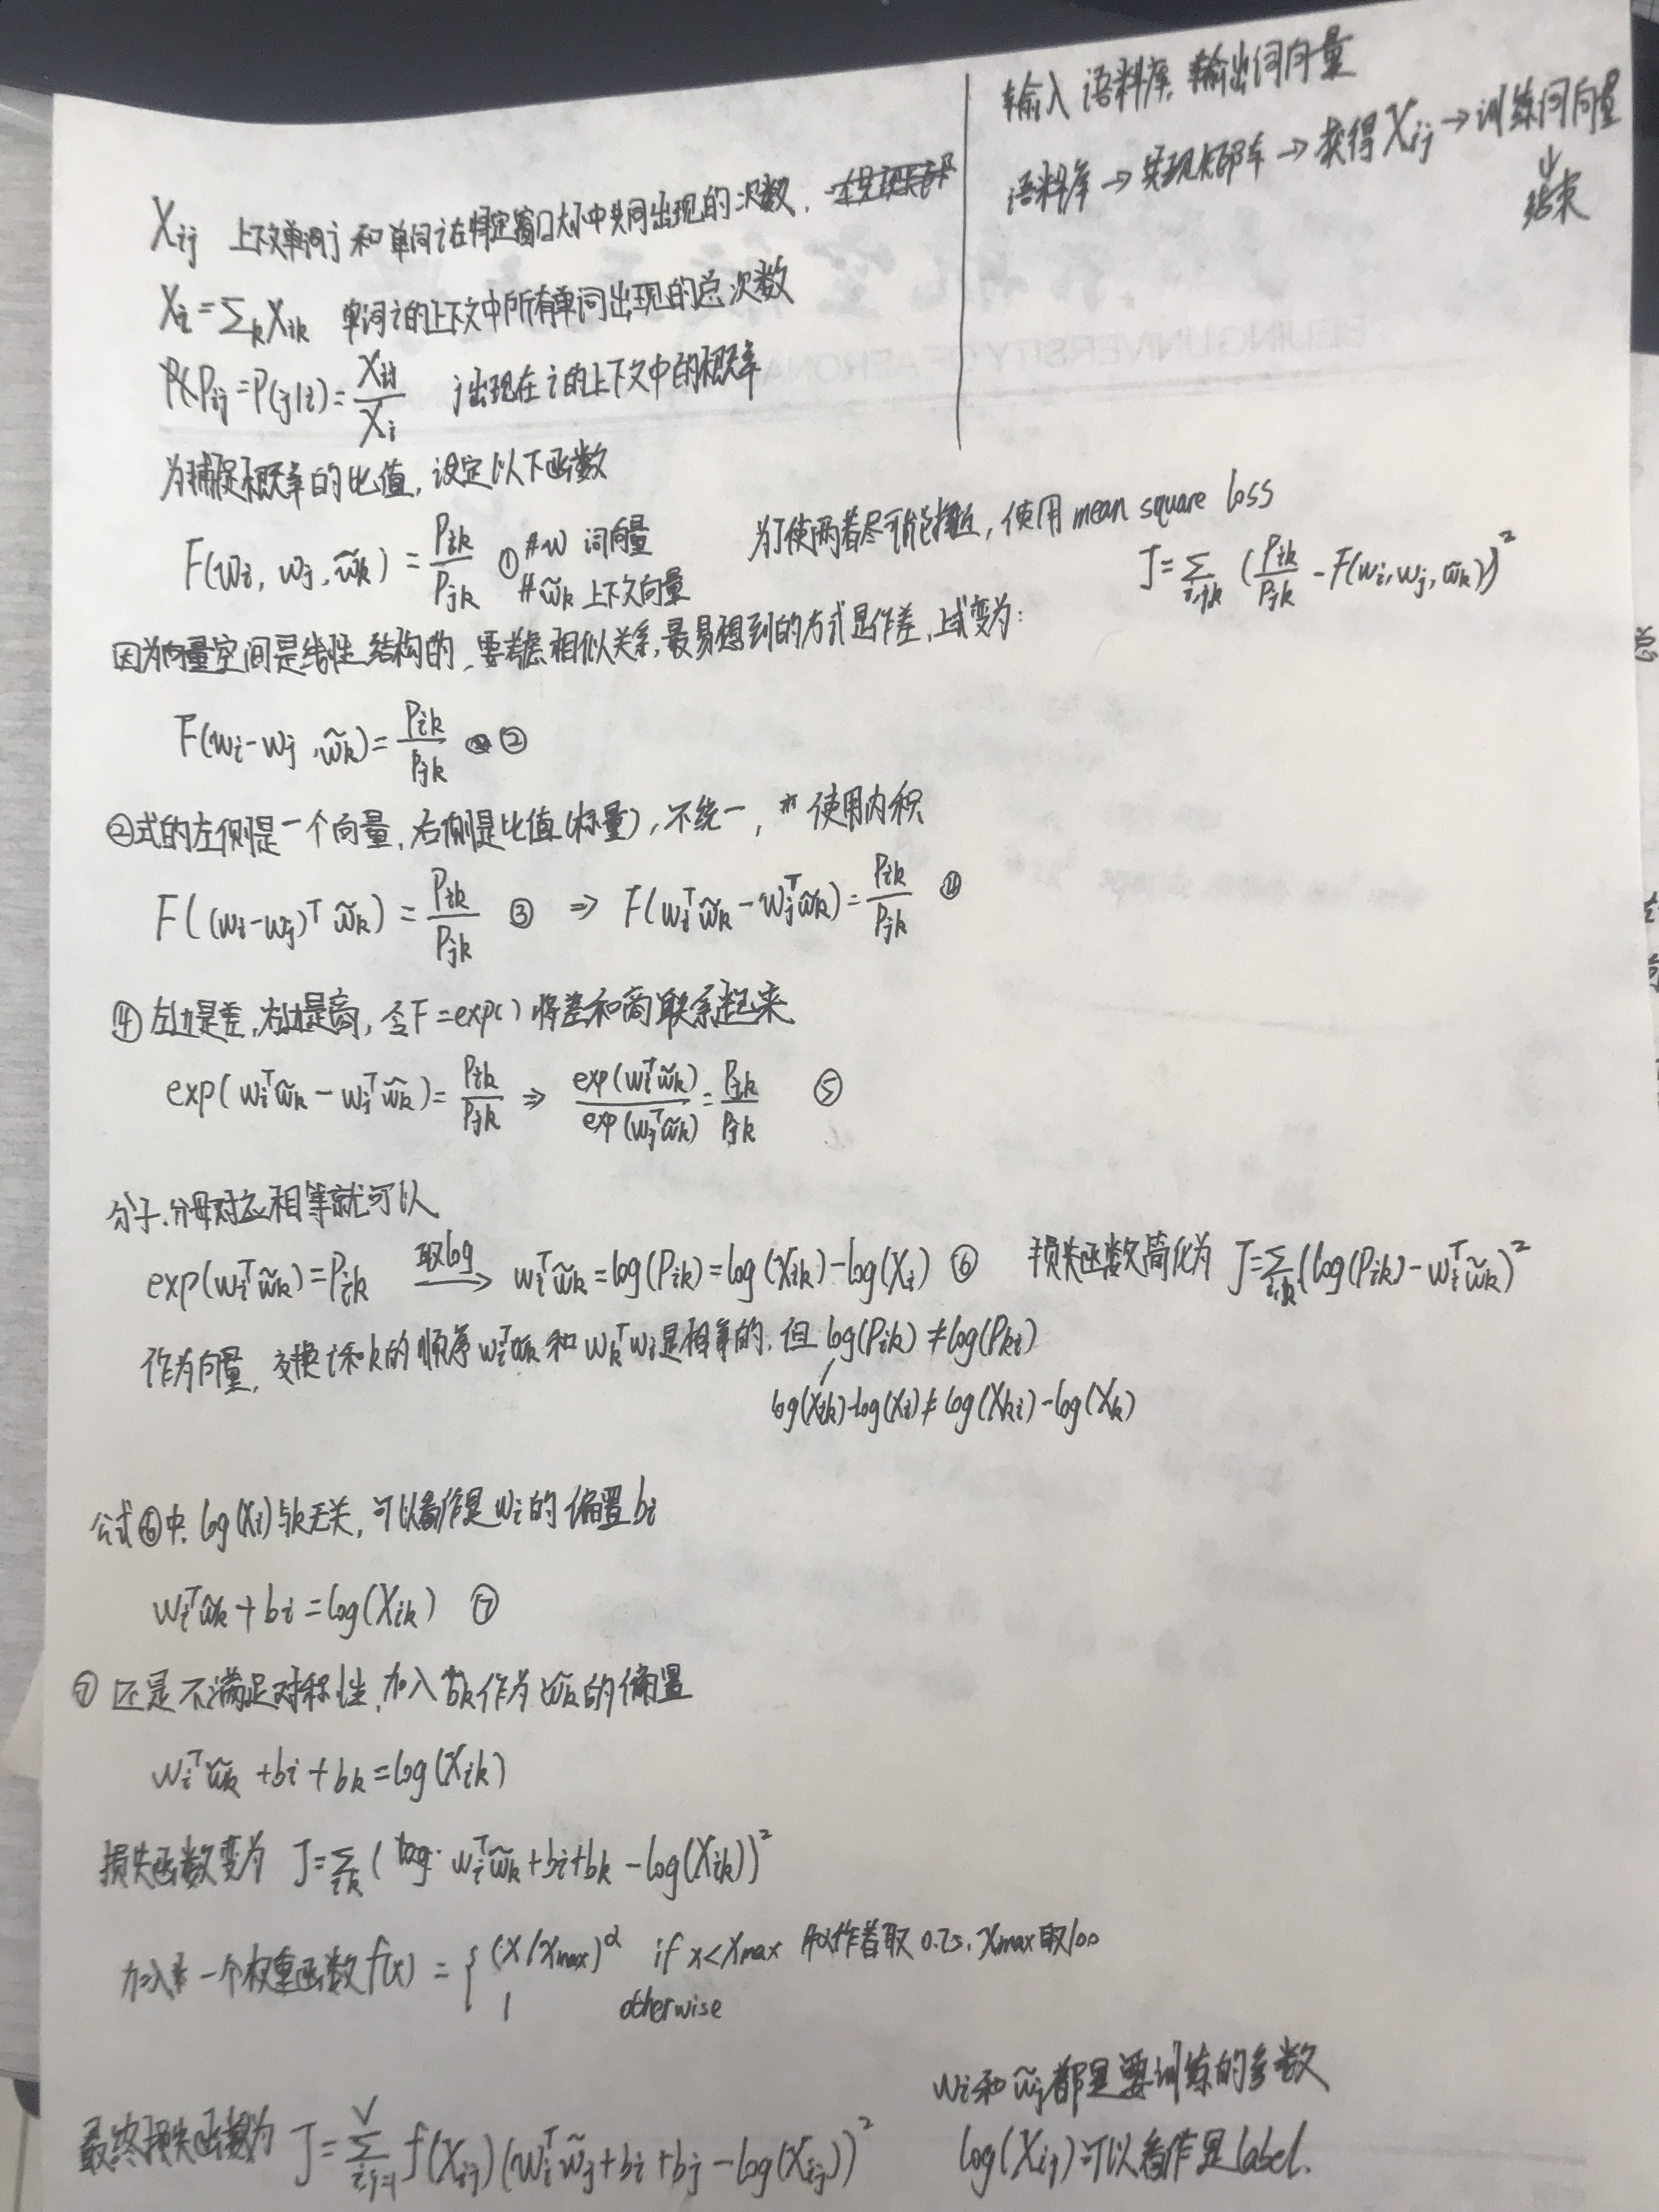 输入语料库,输出词向量
语料库→共现矩阵→获得Xij→训练词向量
↓
结束
Xij 上下文单词j和单词i在特定窗口大小中共同出现的次数.
Xi=∑k Xik 单词i的上下文中所有单词出现的总次数
Pij=P(j|i)=Xij/Xi j出现在i的上下文中的概率
为捕捉概率的比值,设定以下函数
F(wi, wj, w̃k) = Pik/Pjk ① #w 词向量
#w̃k 上下文向量
为了使两者尽可能接近,使用 mean square loss
J=∑i,j,k (Pik/Pjk - F(wi,wj,w̃k))²
因为向量空间是线性结构的,要考虑相似关系,最易想到的方式是作差,上式变为:
F(wi-wj, w̃k)=Pik/Pjk ②
②式的左侧是一个向量,右侧是比值(标量),不统一, 使用内积
F((wi-wj)ᵀ w̃k) = Pik/Pjk ③ ⇒ F(wiᵀw̃k - wjᵀw̃k)=Pik/Pjk ④
④左边是差,右边是商,令F=exp()将差和商联系起来
exp(wiᵀw̃k - wjᵀw̃k)=Pik/Pjk ⇒ exp(wiᵀw̃k)/exp(wjᵀw̃k)=Pik/Pjk ⑤
分子.分母对应相等就可以
exp(wiᵀw̃k)=Pik 取log→ wiᵀw̃k=log(Pik)=log(Xik)-log(Xi) ⑥ 损失函数简化为 J=∑i,k(log(Pik)-wiᵀw̃k)²
作为向量,交换i和k的顺序wiᵀw̃k和wkᵀwi是相等的,但log(Pik)≠log(Pki)
log(Xik)-log(Xi)≠log(Xki)-log(Xk)
公式⑥中,log(Xi)与k无关,可以看作是wi的偏置bi
wiᵀw̃k+bi=log(Xik) ⑦
⑦还是不满足对称性,加入bk作为w̃k的偏置
wiᵀw̃k+bi+bk=log(Xik)
损失函数变为 J=∑ik(wiᵀw̃k+bi+bk-log(Xik))²
加入一个权重函数f(x) = { (x/xmax)^α if x<xmax 作者取0.75,xmax取100
1 otherwise
wi和w̃j都是要训练的参数
最终损失函数为 J=∑(i,j=1→V) f(Xij)(wiᵀw̃j+bi+bj-log(Xij))²
log(Xij)可以看作是label.